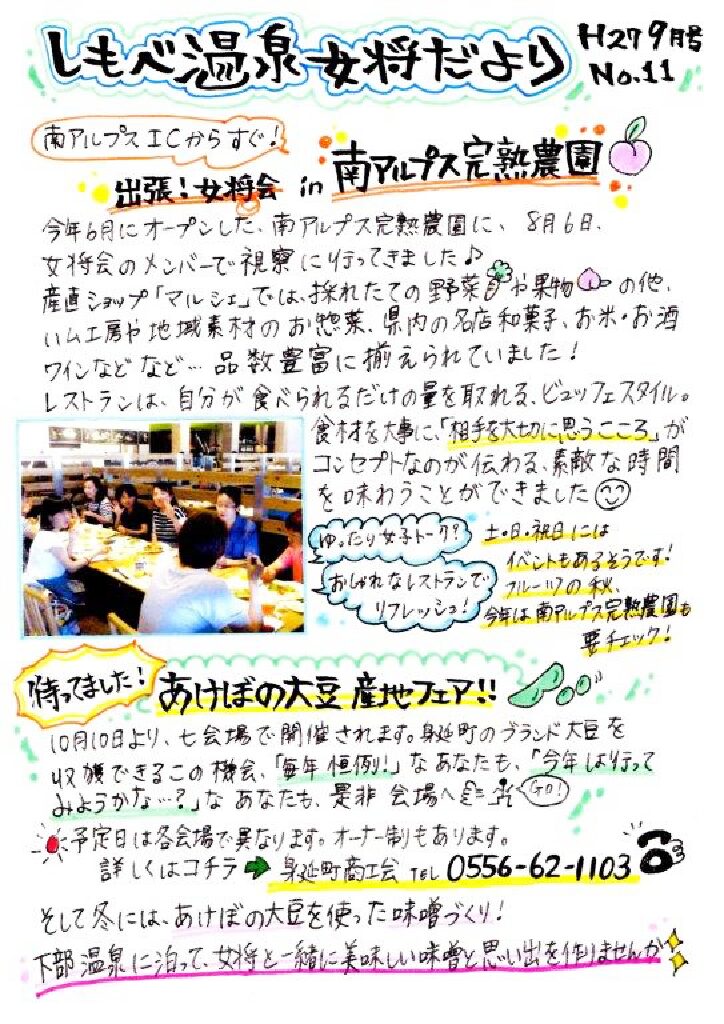 しもべ温泉女将だより
H27 9月号
No.11
南アルプスICからすぐ!
出張!女将会 in 南アルプス完熟農園
今年6月にオープンした、南アルプス完熟農園に、8月6日、
女将会のメンバーで視察に行ってきました♪
産直ショップ「マルシェ」では、採れたての野菜や果物の他、
ハム工房や地域素材のお惣菜、県内の名店和菓子、お米・お酒
ワインなどなど…品数豊富に揃えられていました!
レストランは、自分が食べられるだけの量を取れる、ビュッフェスタイル。
食材を大事に、「相手を大切に思うこころ」が
コンセプトなのが伝わる、素敵な時間
を味わうことができました
ゆったり女子トーク?
おしゃれなレストランで
リフレッシュ!
土・日・祝日には
イベントもあるそうです!
フルーツの秋、
今年は南アルプス完熟農園も
要チェック!
待ってました!
あけぼの大豆産地フェア!!
10月10日より、七会場で開催されます。身延町のブランド大豆を
収穫できるこの機会、「毎年恒例!」なあなたも、「今年は行って
みようかな…?」なあなたも、是非会場へ GO!
予定日は各会場で異なります。オーナー制もあります。
詳しくはコチラ➡身延町商工会 TEL 0556-62-1103
そして冬には、あけぼの大豆を使った味噌づくり!
下部温泉に泊って、女将と一緒に美味しい味噌と思い出を作りませんか